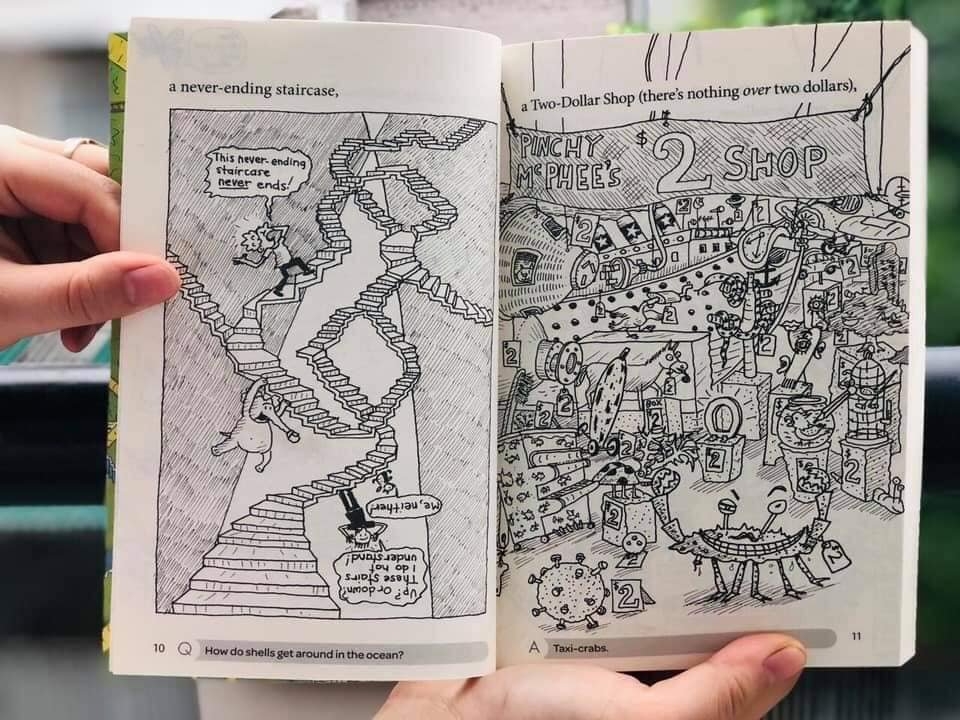 a never-ending staircase,
This never-ending
staircase
never ends!
Me, neither!
Up? Or down?
These stairs
I do not
understand!
10 Q How do shells get around in the ocean?
a Two-Dollar Shop (there's nothing over two dollars),
PINCHY
McPHEE'S
$2 SHOP
$2
2
2
2
2
2
2
2
$2
2
$2
A Taxi-crabs.
11